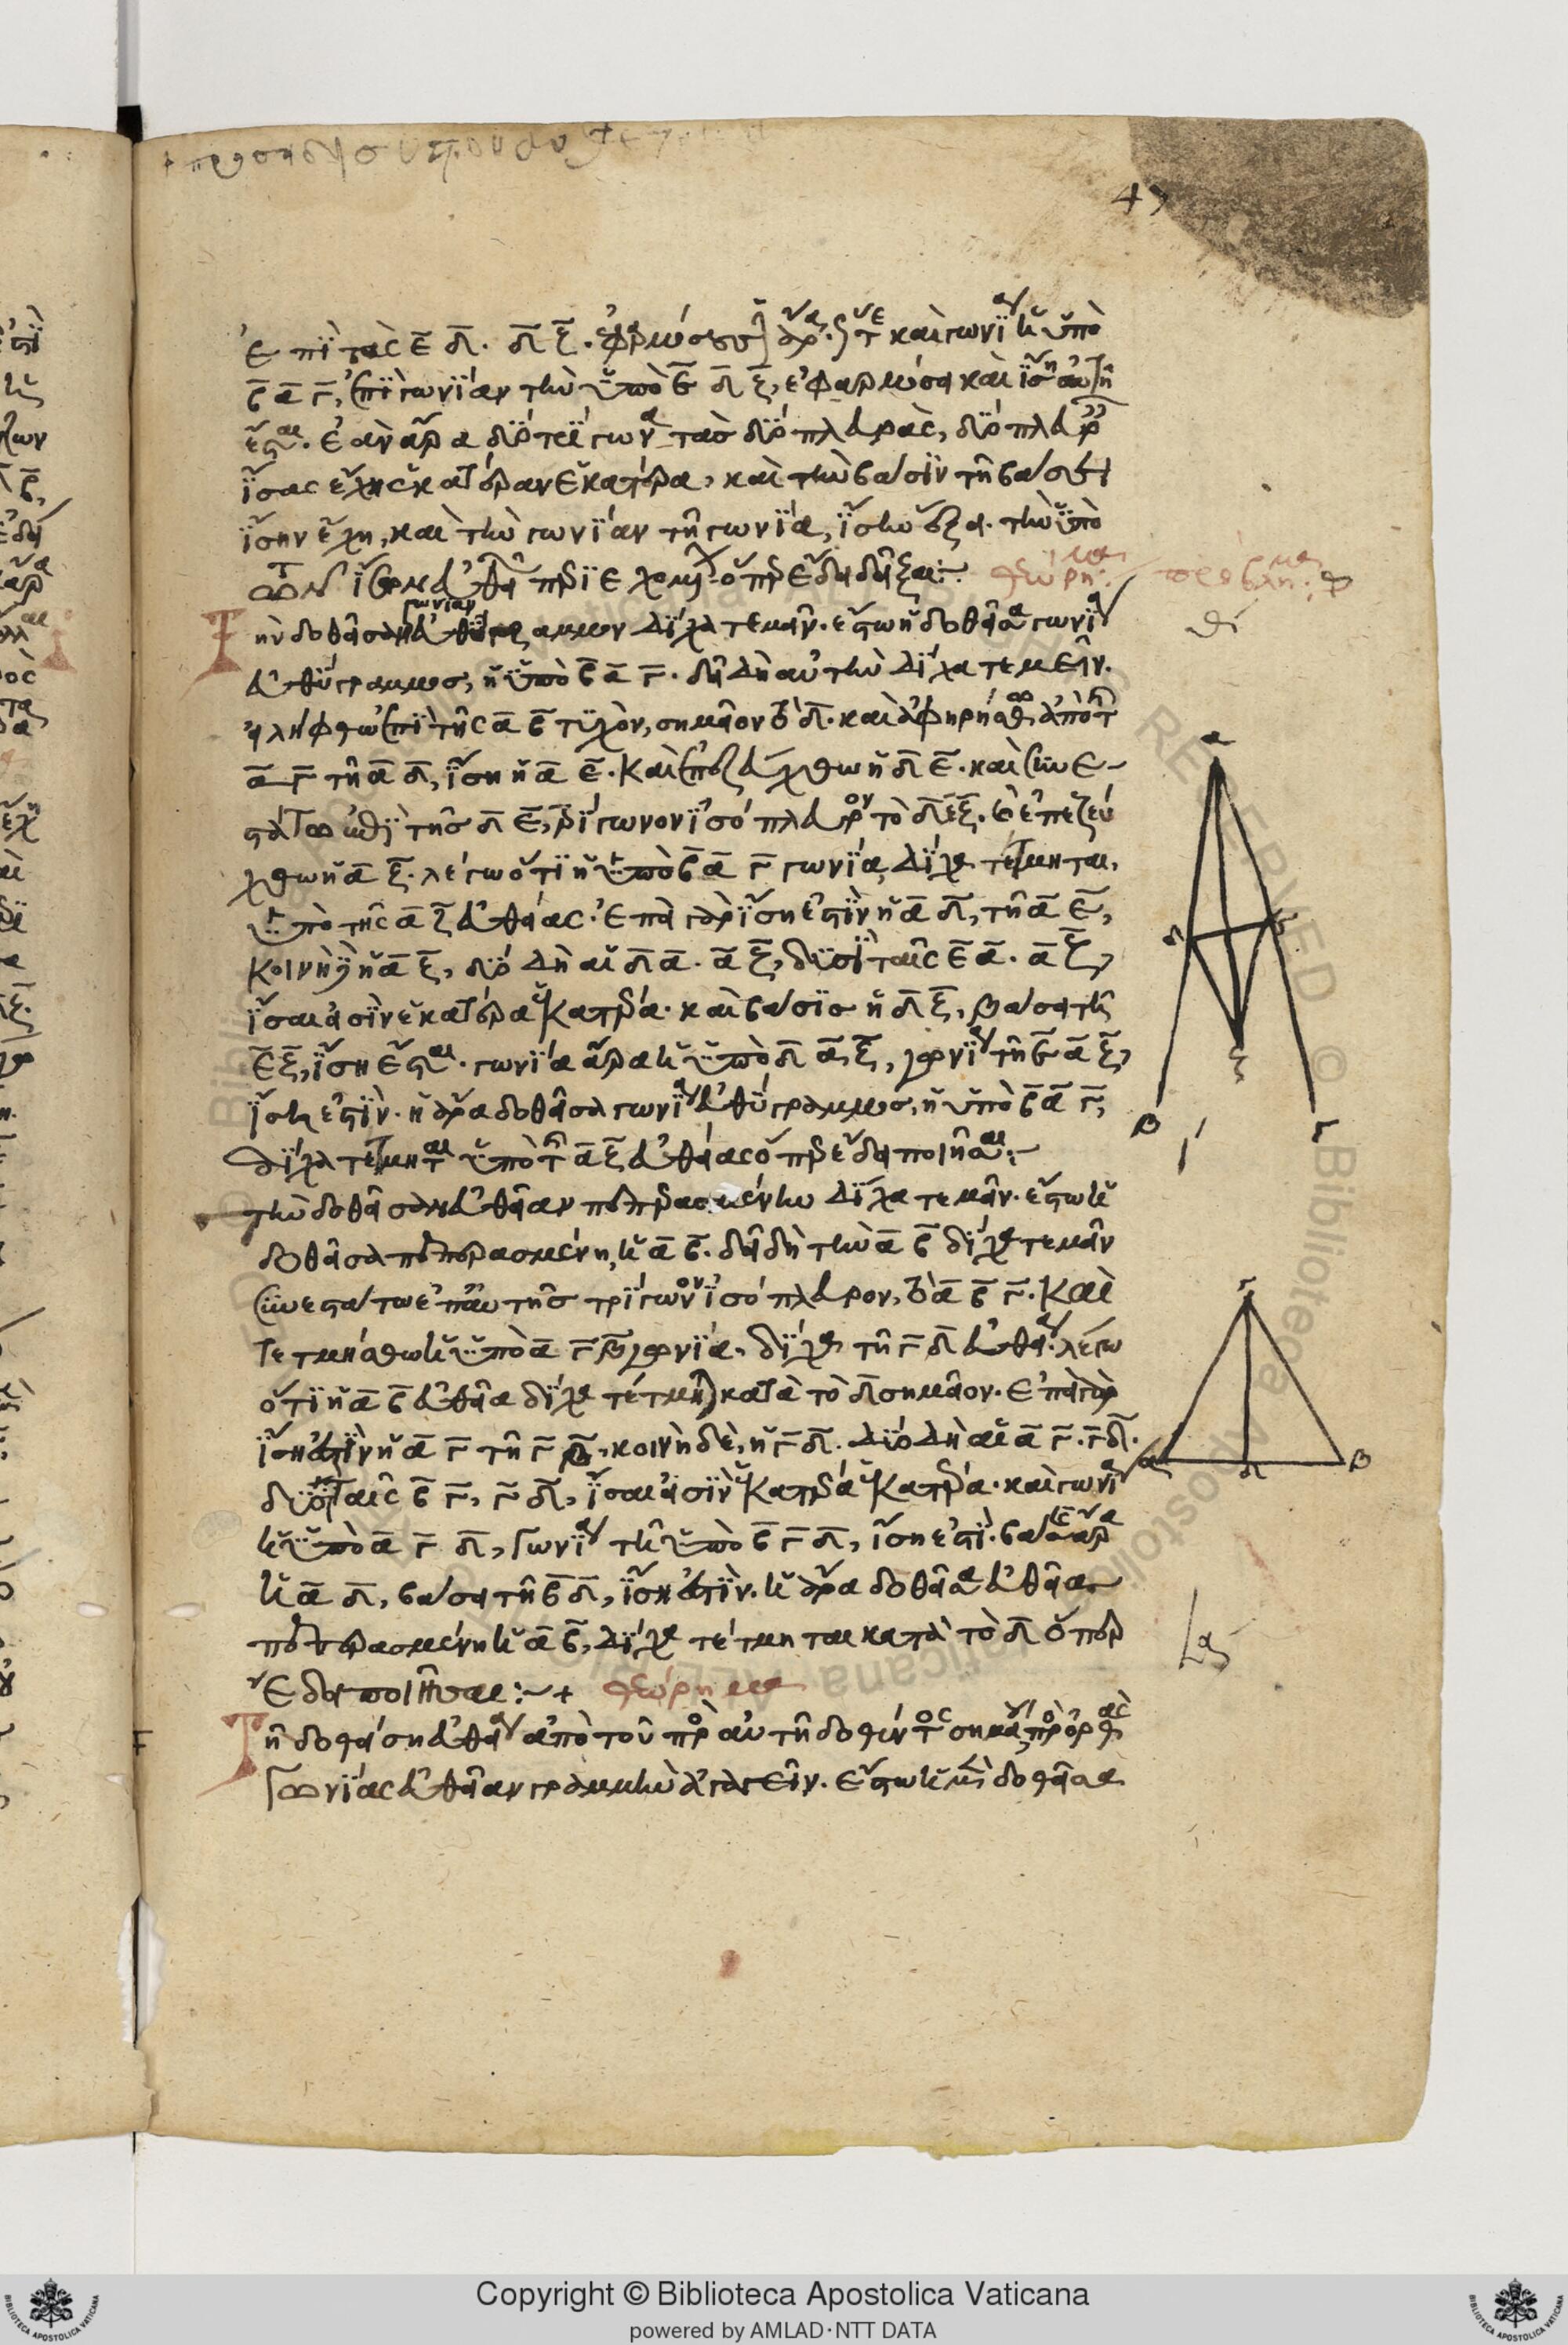 47
ἐπὶ τὰς ε δ. δ ξ. ἐφαρμόσουσιν ὥστε καὶ γωνία ἡ ὑπὸ
β α γ, ἐπὶ γωνίαν τὴν ὑπὸ ε δ ξ, ἐφαρμόσει καὶ ἴση αὐτῆ
ἔσται. ἐὰν ἄρα δύο τρίγωνα τὰς δύο πλευρὰς, δύο πλευραῖς
ἴσας ἔχη ἑκατέραν ἑκατέρα, καὶ τὴν βάσιν τῆ βάσει
ἴσην ἔχη, καὶ τὴν γωνίαν τῆ γωνία, ἴσην ἕξει. τὴν ὑπὸ
τῶν ἴσων εὐθειῶν περιεχομένην. ὅπερ ἔδει δεῖξαι:
θεώρημα πρόβλημα
θ
γωνίαν
Τὴν δοθεῖσαν εὐθύγραμμον δίχα τεμεῖν. ἔστω ἡ δοθεῖσα γωνία
εὐθύγραμμος, ἡ ὑπὸ β α γ. δεῖ δὴ αὐτὴν δίχα τεμεῖν.
εἰλήφθω ἐπὶ τῆς α β τυχὸν, σημεῖον τὸ δ. καὶ ἀφηρήσθω ἀπὸ τῆς
α γ τῆ α δ, ἴση ἡ α ε. καὶ ἐπεζεύχθω ἡ δ ε. καὶ συνε
στάτω ἐπὶ τῆς δ ε, τρίγωνον ἰσόπλευρον τὸ δ ε ξ. καὶ ἐπεζεύ
χθω ἡ α ξ. λέγω ὅτι ἡ ὑπὸ β α γ γωνία, δίχα τέτμηται,
ὑπὸ τῆς α ξ εὐθείας. ἐπεὶ γὰρ ἴση ἐστὶν ἡ α δ, τῆ α ε,
κοινὴ δὲ ἡ α ξ, δύο δὴ αἱ δ α. α ξ, δυσὶ ταῖς ε α. α ξ,
ἴσαι εἰσὶν ἑκατέρα ἑκατέρα. καὶ βάσις ἡ δ ξ, βάσει τῆ
ε ξ, ἴση ἐστὶ. γωνία ἄρα ἡ ὑπὸ δ α ξ, γωνία τῆ ε α ξ,
ἴση ἐστὶν. ἡ ἄρα δοθεῖσα γωνία εὐθύγραμμος, ἡ ὑπὸ β α γ,
δίχα τέτμηται ὑπὸ τῆς α ξ εὐθείας ὅπερ ἔδει ποιῆσαι:
ι
τὴν δοθεῖσαν εὐθεῖαν πεπερασμένην δίχα τεμεῖν. ἔστω ἡ
δοθεῖσα πεπερασμένη, ἡ α β. δεῖ δὴ τὴν α β δίχα τεμεῖν
συνεστάτω ἐπ' αὐτῆς τρίγωνον ἰσόπλευρον, τὸ α β γ. καὶ
τετμήσθω ἡ ὑπὸ α γ β γωνία. δίχα τῆ γ δ εὐθεία. λέγω
ὅτι ἡ α β εὐθεῖα δίχα τέτμηται κατὰ τὸ δ σημεῖον. ἐπεὶ γὰρ
ἴση ἐστὶν ἡ α γ τῆ γ β, κοινὴ δὲ, ἡ γ δ. δύο δὴ αἱ α γ. γ δ.
δυσὶ ταῖς β γ, γ δ, ἴσαι εἰσὶν ἑκατέρα ἑκατέρα. καὶ γωνία
ἡ ὑπὸ α γ δ, γωνία τῆ ὑπὸ β γ δ, ἴση ἐστί. βάσις ἄρα
ἡ α δ, βάσει τῆ β δ, ἴση ἐστὶν. ἡ ἄρα δοθεῖσα εὐθεῖα
πεπερασμένη ἡ α β, δίχα τέτμηται κατὰ τὸ δ ὅπερ
ἔδει ποιῆσαι:~+ θεώρημα
ια
Τῆ δοθείση εὐθεία ἀπὸ τοῦ πρὸς αὐτῆ δοθέντος σημείου πρὸς ὀρθὰς
γωνίας εὐθεῖαν γραμμὴν ἀγαγεῖν. ἔστω ἡ μὲν δοθεῖσα
α
δ
ε
ξ
β
γ
γ
α
δ
β
Copyright © Biblioteca Apostolica Vaticana
powered by AMLAD·NTT DATA